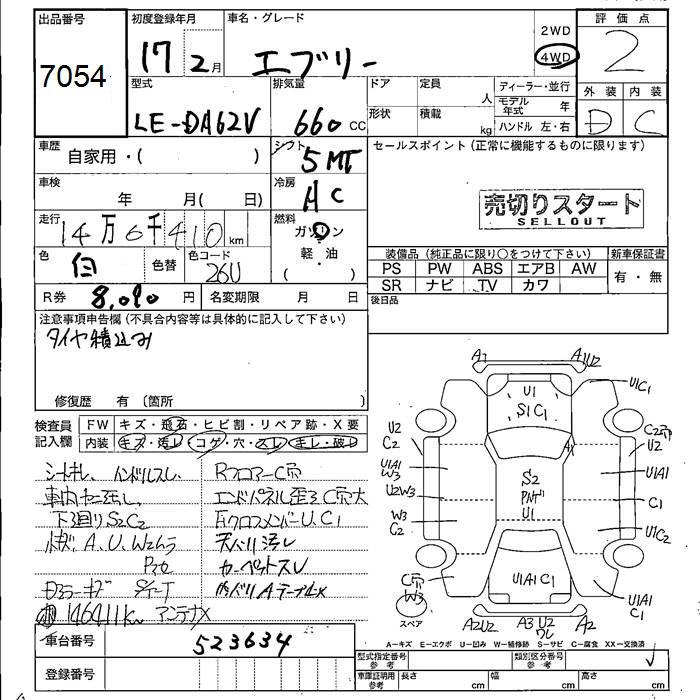 出品番号
7054
初度登録年月
17 2月
車名・グレード
エブリー
2WD
4WD
評価点
2
型式
LE-DA62V
排気量
660 CC
ドア
定員
人
ディーラー・並行
モデル年式 年
外装 内装
D C
形状
積載
kg
ハンドル 左・右
車歴
自家用・( )
シフト
5MT
セールスポイント (正常に機能するものに限ります)
車検
年 月( 日)
冷房
AC
売切りスタート
SELLOUT
走行
14万6千410km
燃料
ガソリン
軽・油
( )
色
白
色替
色コード
26U
装備品 (純正品に限り○をつけて下さい)
新車保証書
PS PW ABS エアB AW
有・無
SR ナビ TV カワ
R券 8,090 円
名変期限 月 日
後日品
注意事項申告欄(不具合内容等は具体的に記入して下さい)
タイヤ積込み
修復歴 有(箇所 )
検査員
記入欄
FW キズ・飛石・ヒビ割・リペア跡・X要
内装 キズ・汚レ コゲ・穴・スレ キレ・破レ
シートキレ、ハンドルスレ
RフロアーC穴
エンドパネル歪ミC穴大
下廻りS2C2
FクロスメンバーU、C1
天バリ汚レ
カーペットスレ
146411km アンテナX
A1
A1U2
U1
S1C1
U1C1
U2
C2
C2穴
U2
U1A1
W3
A1
S2
U1
U1A1
U2W3
C1
W3
C2
U1C2
C穴
W3
U1A1C1
U1A1
C1
スペア
A2U2
A3 U2
ワレ
A2
A=キズ E=エクボ U=凹み W=補修跡 S=サビ C=腐食 XX=交換済
車台番号
523634
登録番号
型式指定番号
参考
類別区分番号
参考
車庫証明用
参考
長さ cm
幅 cm
高さ cm